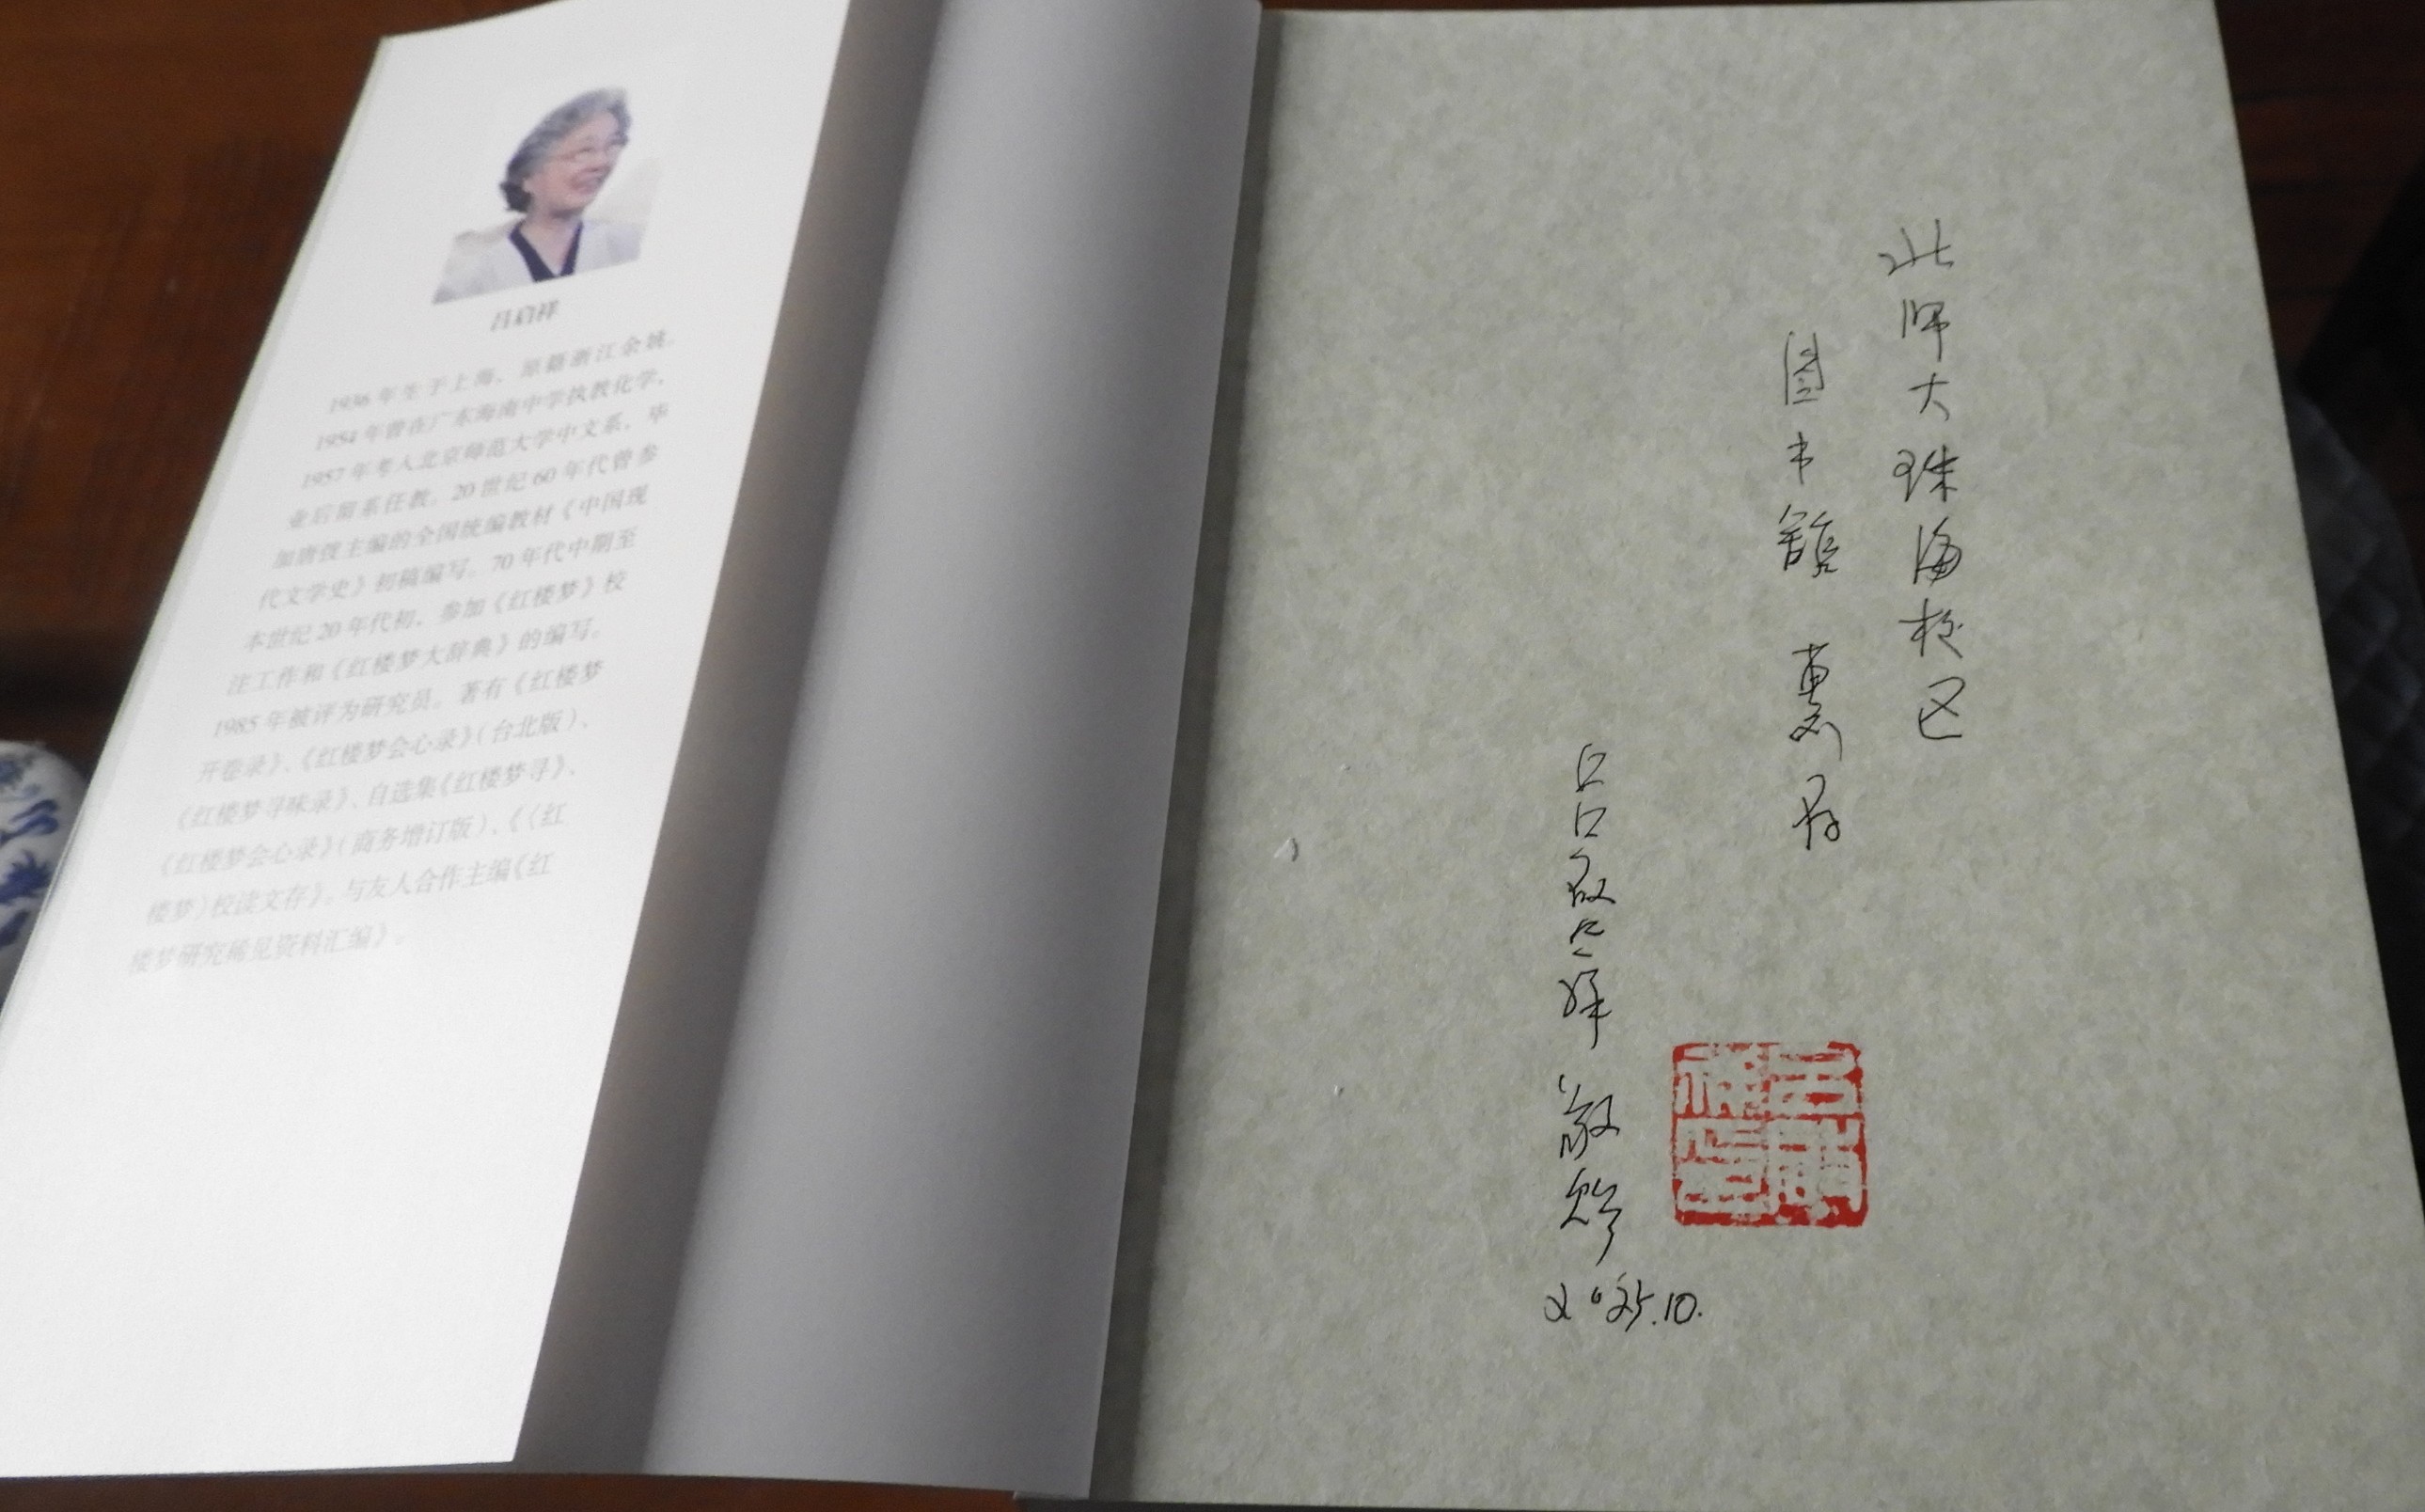 吕启祥
1936年生于上海，原籍浙江余姚。
1954年曾在广东海南中学执教化学，
1957年考入北京师范大学中文系，毕
业后留系任教。20世纪60年代曾参
加唐弢主编的全国统编教材《中国现
代文学史》初稿编写。70年代中期至
本世纪20年代初，参加《红楼梦》校
注工作和《红楼梦大辞典》的编写。
1985年被评为研究员。著有《红楼梦
开卷录》、《红楼梦会心录》（台北版）、
《红楼梦寻味录》、自选集《红楼梦寻》、
《红楼梦会心录》（商务增订版）、《〈红
楼梦〉校读文存》。与友人合作主编《红
楼梦研究稀见资料汇编》。
北师大珠海校区
图书馆 惠存
吕启祥 敬贻
2025.10.
吕启祥印